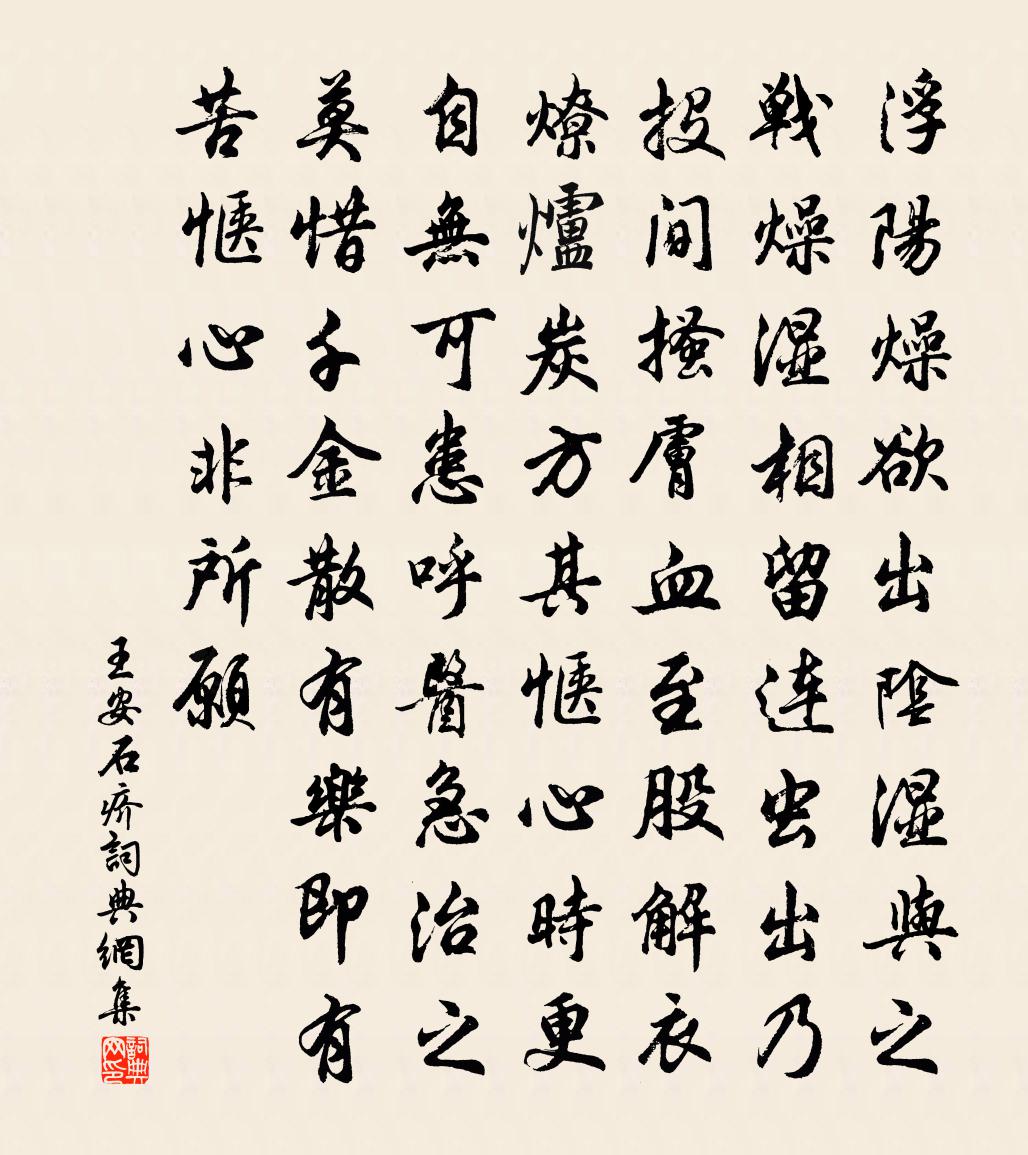 浮陽燥欲出陰濕與之
戰燥濕相留連虫出乃
投間搔膚血至股解衣
燎爐炭方其愜心時更
自無可患呼醫急治之
莫惜千金散有樂即有
苦愜心非所願
王安石疥詞典網集
詞典网印